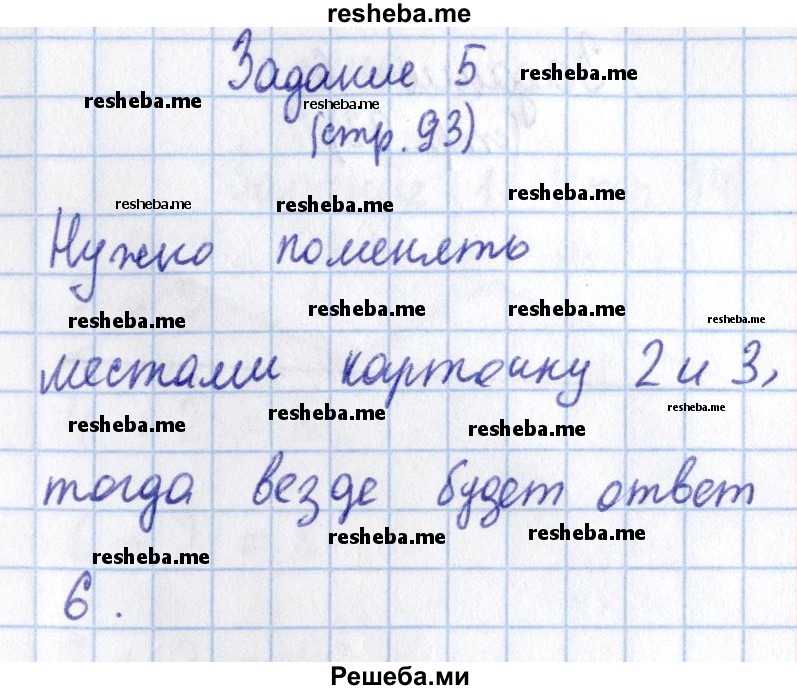 resheba.me
Задание 5
resheba.me
resheba.me
resheba.me
(стр. 93)
resheba.me
resheba.me
resheba.me
Нужно поменять
resheba.me
resheba.me
resheba.me
resheba.me
местами карточку 2 и 3,
resheba.me
resheba.me
resheba.me
resheba.me
тогда везде будет ответ
resheba.me
resheba.me
resheba.me
6.
Решеба.ми